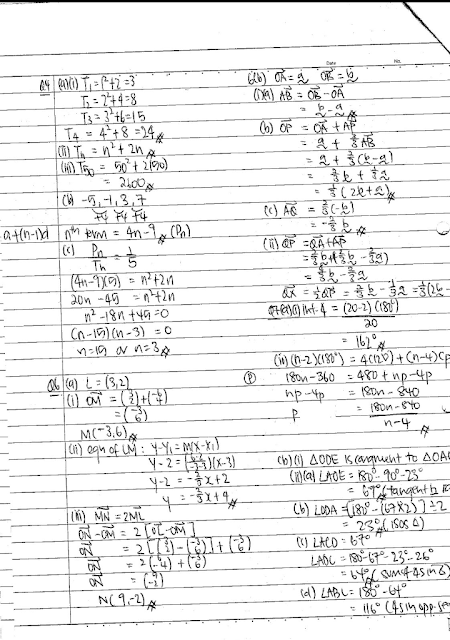 Date No.
Q4 (a)(i) T₁ = 1²+2 = 3
T₂ = 2²+4 = 8
T₃ = 3²+6 = 15
T₄ = 4²+8 = 24
(ii) Tₙ = n² + 2n
(iii) T₅₀ = 50² + 2(50)
= 2600
(b) -5, -1, 3, 7
+4 +4 +4
a+(n-1)d nth term = 4n-9 (Pn)
(c) Pn/Tn = 1/5
(4n-9)(5) = n²+2n
20n - 45 = n²+2n
n² - 18n + 45 = 0
(n-15)(n-3) = 0
n=15 or n=3
Q6 (a) L = (3,2)
(i) OM =
= (-3 6)
M(-3,6)
(ii) eqn of LM : y-y₁ = m(x-x₁)
y-2 = (x-3)
y-2 = x+2
y = x+4
(iii) MN = 2ML
ON - OM = 2[OL-OM]
ON = 2[(3 2) - (-3 6)] + (-3 6)
ON = + (-3 6)
ON = (9 -2)
N(9,-2)
(b) OA = a OB = b
(i)(a) AB = OB - OA
= b - a
(b) OP = OA + AP
= a + AB
= a + (b-a)
= b + a
= (2b+a)
(c) AQ = (-b)
= b
(ii) QP = QA + AP
QX = QP
(a)(i) int. = (20-2)(180°)
20
= 162°
(ii) (n-2)(180°) = 4(120°) + (n-4)(p
180n-360 = 480 + np - 4p
np - 4p = 180n - 840
p = 180n - 840
n-4
(b)(i) △ODE is congruent to △OA
(ii)(a) ∠AOE = 180° - 90° - 23°
= (tangent
(b) ∠ODA = [180° - (67×2)] ÷ 2
= 23° (isos △)
(c) ∠ACD = 67°
∠ADC = 180° - 67° - 23° - 26°
= 64° (sum of ∠s in
(d) ∠ABC = 180° - 64°
= 116° (∠s in opp. se